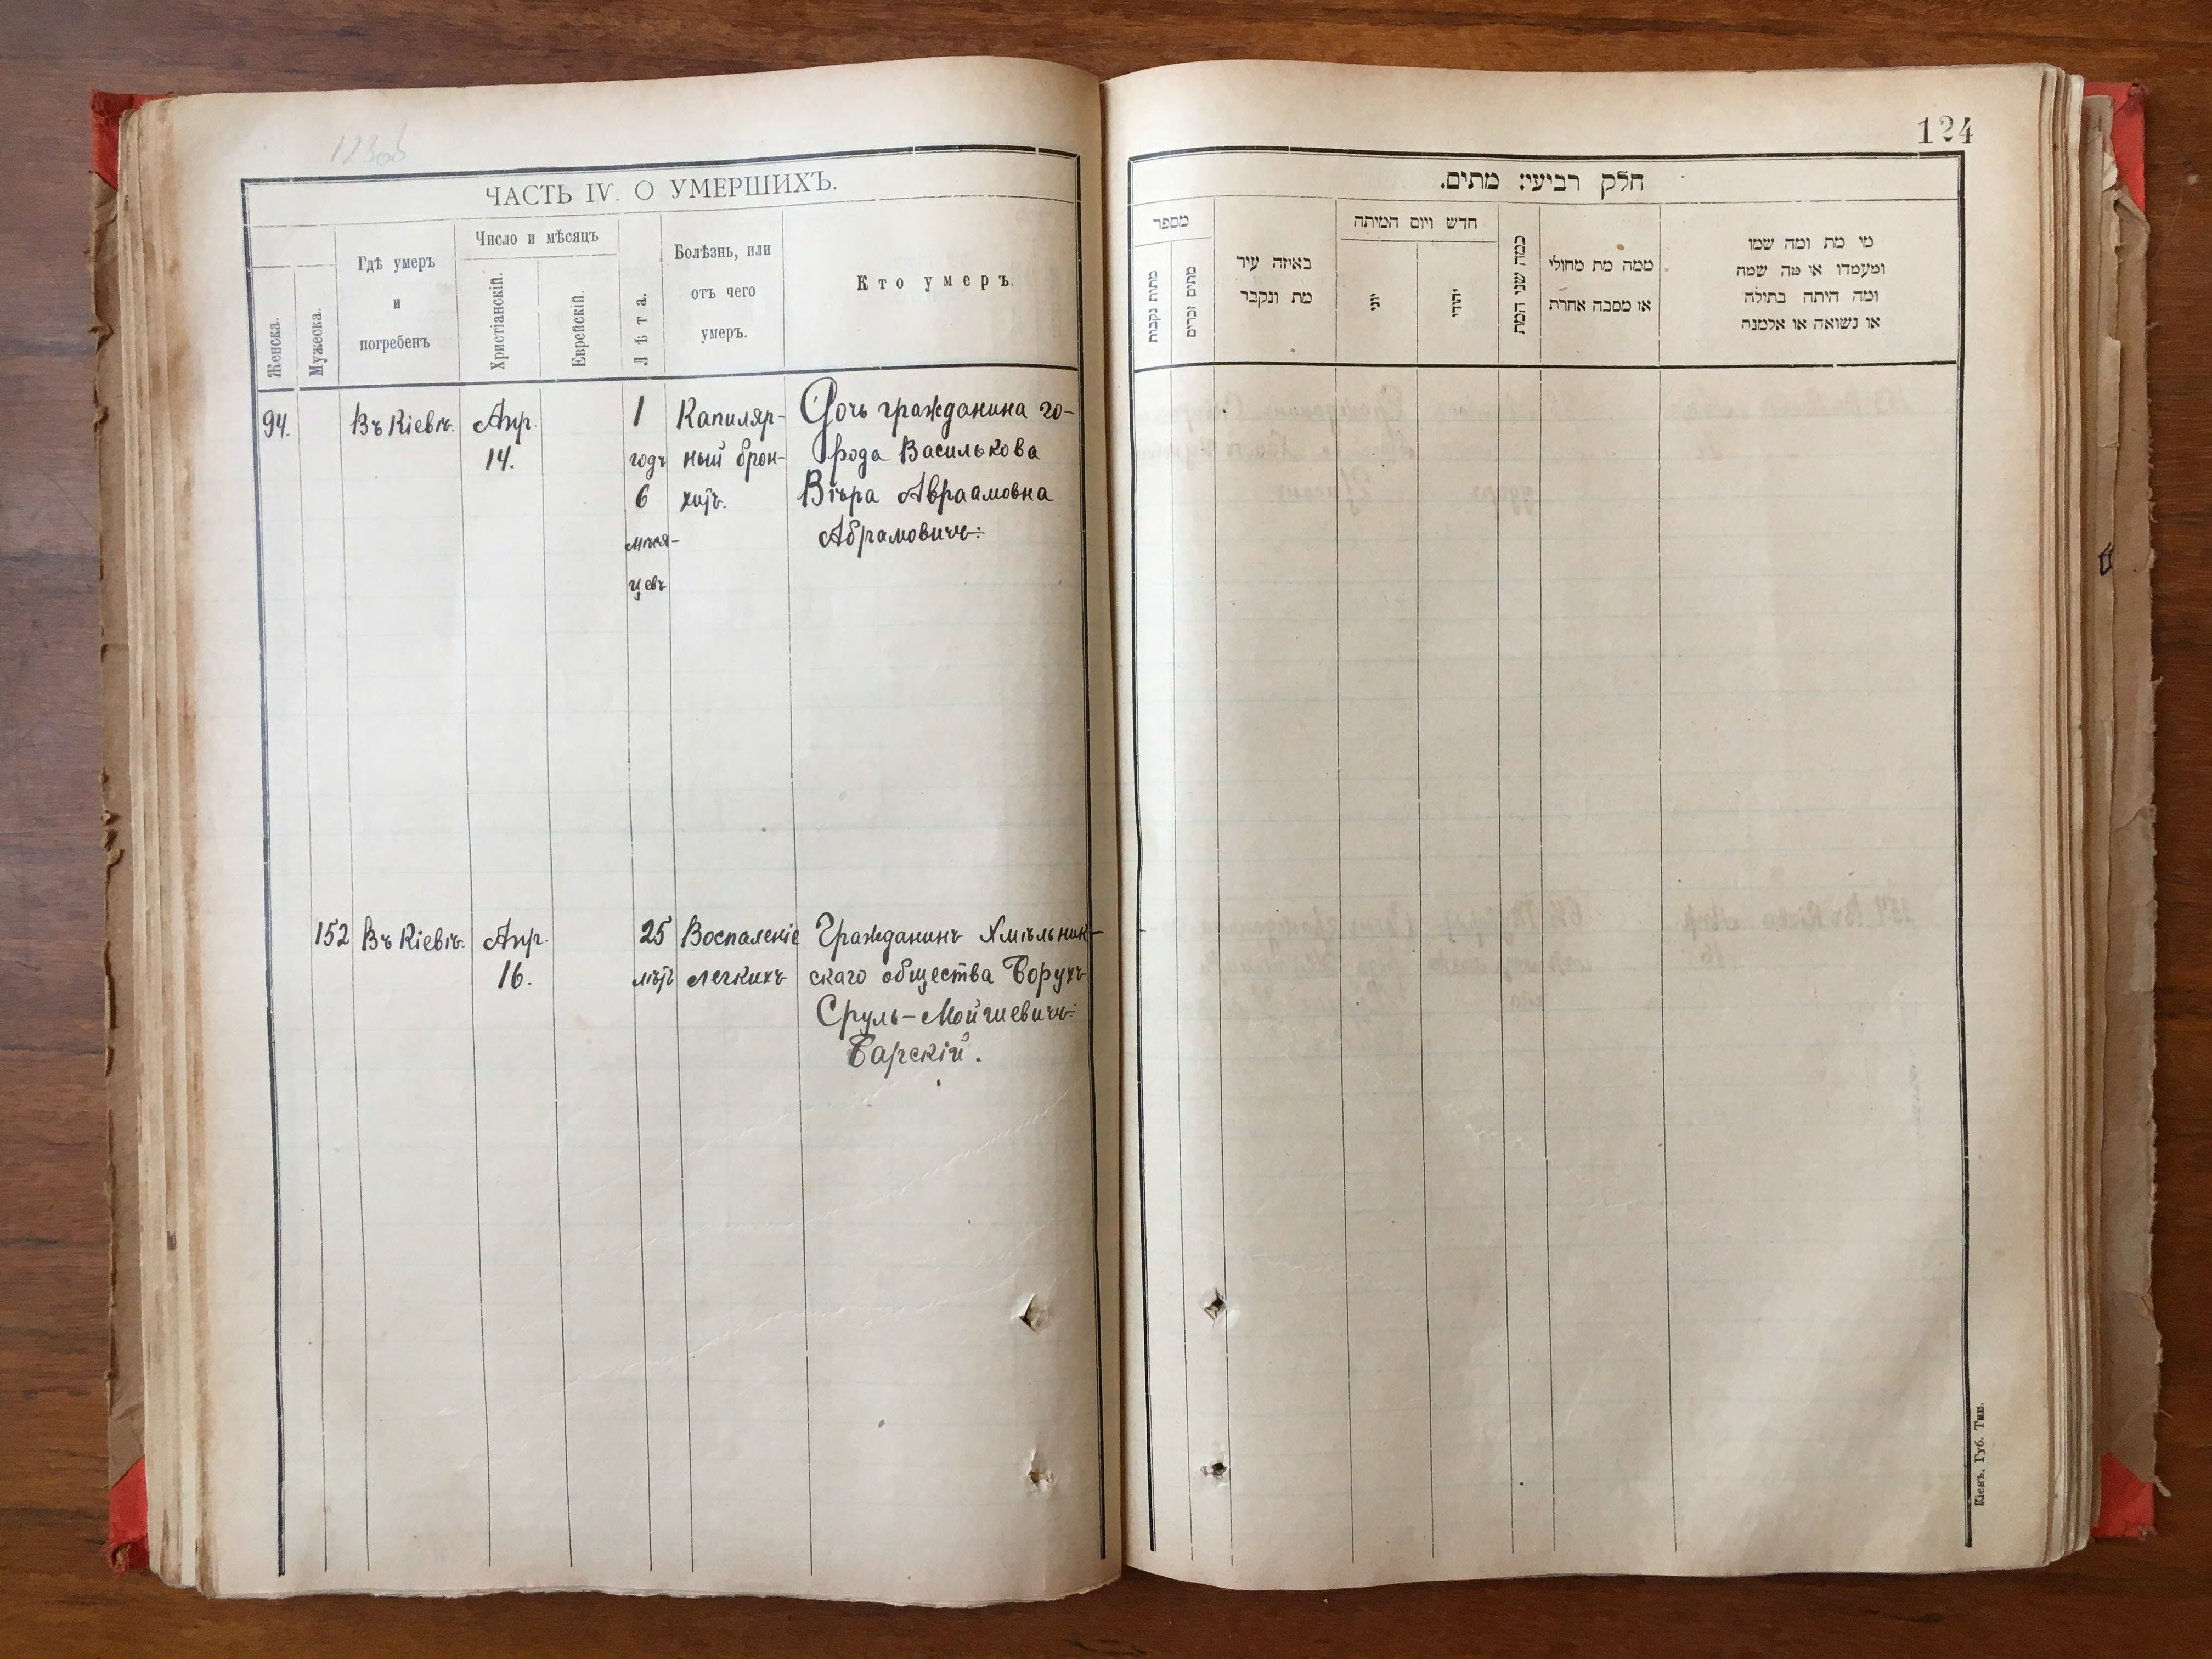 123об
ЧАСТЬ IV. О УМЕРШИХЪ.
Женска.
Мужеска.
Гдѣ умеръ
и
погребенъ
Число и мѣсяцъ
Христіанскій.
Еврейскій.
Лѣта.
Болѣзнь, или
отъ чего
умеръ.
Кто умеръ.
94.
Въ Кіевѣ.
Апр.
14.
1
годъ
6
мѣся-
цевъ
Капиляр-
ный брон-
хитъ.
Дочь гражданина го-
рода Василькова
Вѣра Авраамовна
Абрамовичъ.
152
Въ Кіевѣ.
Апр.
16.
25
лѣтъ
Воспаленіе
легкихъ
Гражданинъ Хмѣльник-
скаго общества Борухъ
Сруль-Мойшевичъ
Барскій.
124
חלק רביעי: מתים.
מספר
מתות נקבות
מתים זכרים
באיזה עיר
מת ונקבר
חדש ויום המיתה
יוני
יהודי
כמה שני המת
ממה מת מחולי
או מסבה אחרת
מי מת ומה שמו
ומעמדו או מה שמה
ומה היתה בתולה
או נשואה או אלמנה
Кіевъ. Губ. Тип.